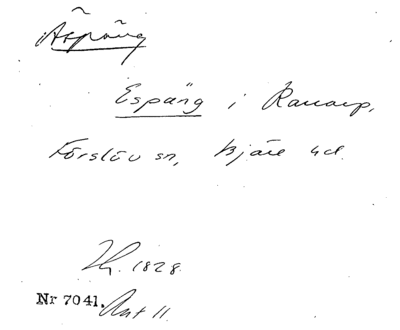 Äspäng
Espäng i Ranarp,
Förslöv sn, Bjäre hd.
1828.
Nr 7041.